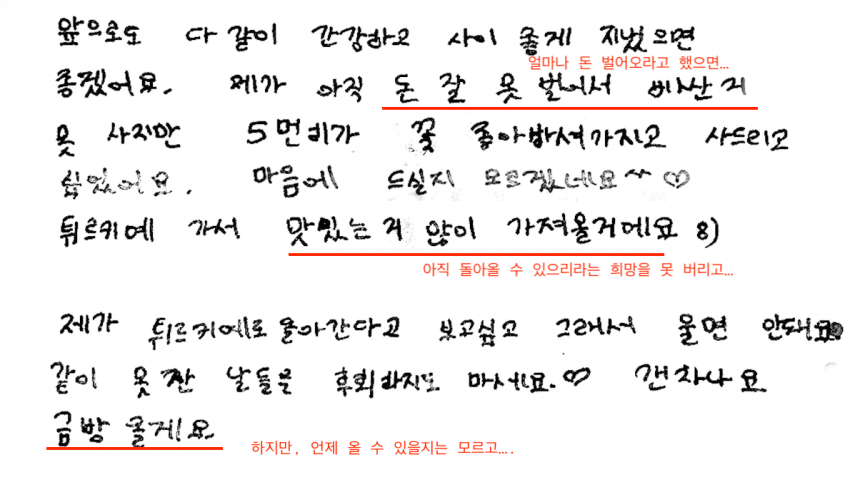 앞으로도 다 같이 간강하고 사이 좋게 지냈으면
얼마나 돈 벌어오라고 했으면…
좋겠어요. 제가 아직 돈 잘 못 벌어서 비산 거
못 사지만 꽃 좋아하셔가지고 사드리고
싶었어요. 마음에 드실지 모르겠네요^^ ♡
튀르키예 가서 맛있는 거 많이 가져올거에요 8)
아직 돌아올 수 있으리라는 희망을 못 버리고…
제가 튀르키예로 돌아간다고 보고싶고 그래서 울면 안돼요
같이 못 날들을 후회하지도 마세요.♡ 갠차나요
금방 올게요
하지만, 언제 올 수 있을지는 모르고….